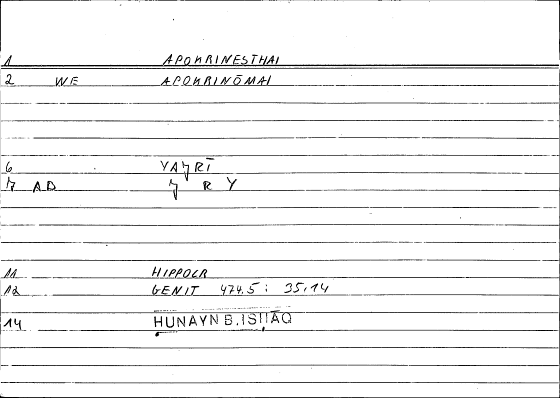 1 APOKRINESTHAI
2 WE APOKRINŌMAI
6 YAǦRĪ
7 AD Ǧ R Y
11 HIPPOCR
12 GENIT 474.5 : 35,14
14 ḤUNAYN B. ISḤĀQ